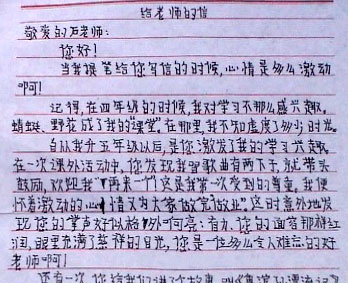 给老师的信
敬爱的石老师:
您好!
当我提笔给您写信的时候,心情是多么激动
啊!
记得,在四年级的时候,我对学习不那么感兴趣。
蜻蜓、野花成了我的“课堂”。在那里,我不知虚度了多少时光。
自从我升五年级以后,是您激发了我的学习兴趣。
在一次课外活动中,您发现我唱歌曲有两下子,就带头
鼓励,欢迎我“再来一个”这是我第一次受到的尊重。我便
怀着激动的心情又为大家做完做业”这时意外地发
现您的掌声好似格外响亮:有力。您的面容那样红
润,眼里充满了慈祥的目光,您是一位多么令人难忘的好
老师啊!
还有一次,您给我们讲了个故事,叫《鲁滨孙漂流记》